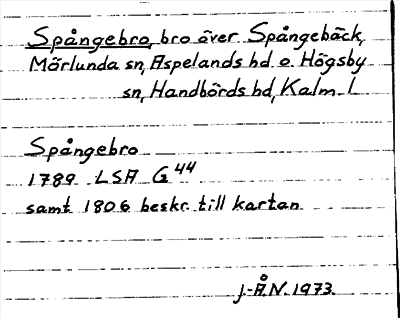 Spångebro, bro över Spångebäck,
Mörlunda sn, Aspelands hd o. Högsby
sn, Handbörds hd, Kalm. l.
Spångebro
1789 LSA G 44
samt 1806 beskr. till kartan
J.-Å.N. 1973.